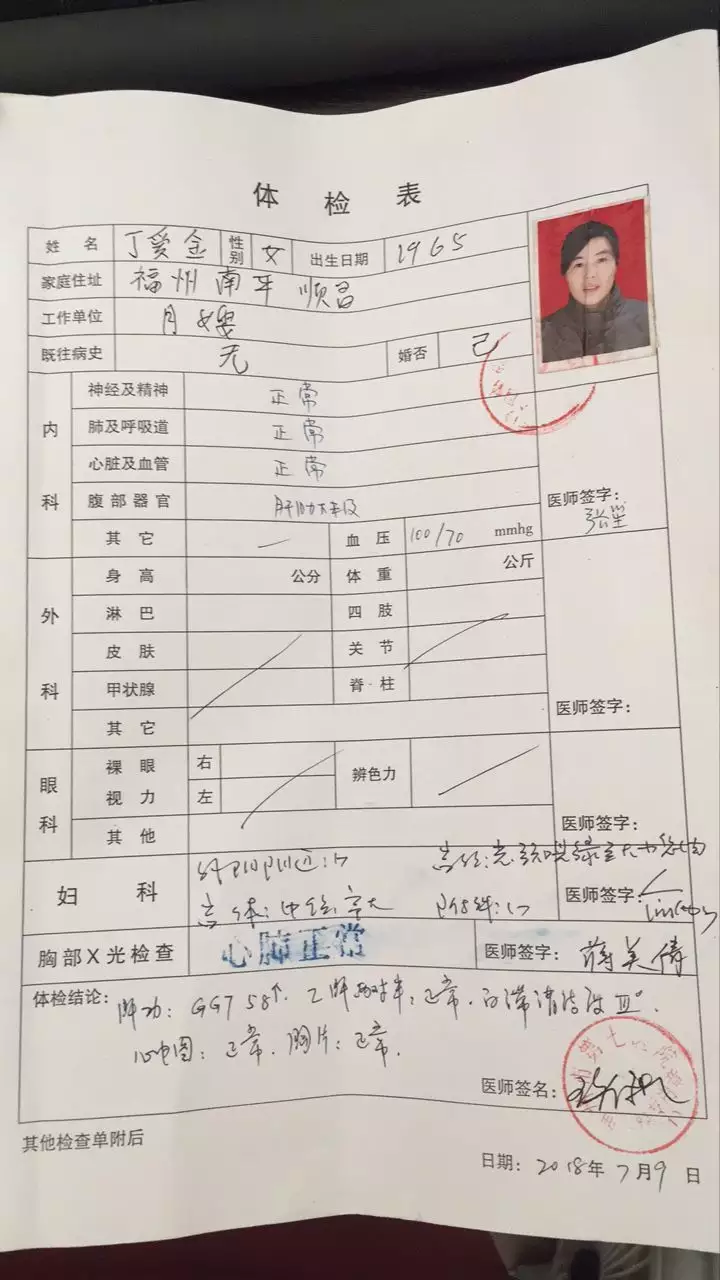 体 检 表
姓 名 丁爱金 性别 女 出生日期 1965
家庭住址 福州南平顺昌
工作单位 月嫂
既往病史 无 婚否 已
内科
神经及精神 正常
肺及呼吸道 正常
心脏及血管 正常
腹部器官
医师签字:
其 它 — 血 压 100/70 mmhg
外科
身 高 公分 体 重 公斤
淋 巴 四 肢
皮 肤 关 节
甲状腺 脊 柱
其 它
医师签字:
眼科
裸眼视力 右 左 辨色力
其 他
医师签字:
妇 科
医师签字:
胸部X光检查 心肺正常 医师签字: 蒋美倩
体检结论: 肝功: GGT 58↑. 正常. 白带清洁度 III°.
心电图: 正常. 胸片: 正常.
医师签名:
其他检查单附后
日期: 2018年7月9日